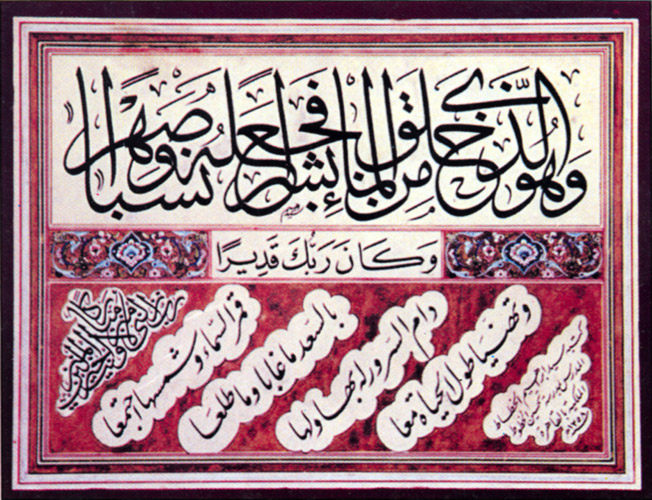 وَهُوَ الَّذِي خَلَقَ مِنَ الْمَاءِ بَشَرًا فَجَعَلَهُ نَسَبًا وَصِهْرًا
وَكَانَ رَبُّكَ قَدِيرًا
قمر السماء وشمسها اجتمعا
بالسعد ما غابا وما طلعا
دام السرور له بها ولها
وتهنيا طول الحياة معا